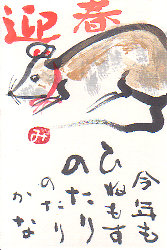 迎春
今年も
ひねもす
のたり
のたり
かな
み